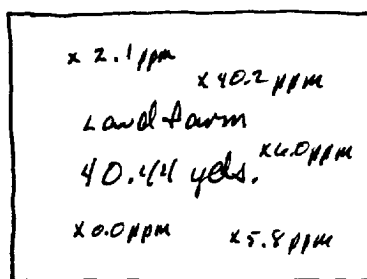 x 2.1 ppm
x 40.2 ppm
Landfarm
40.44 yds.
x 6.0 ppm
x 0.0 ppm
x 5.8 ppm